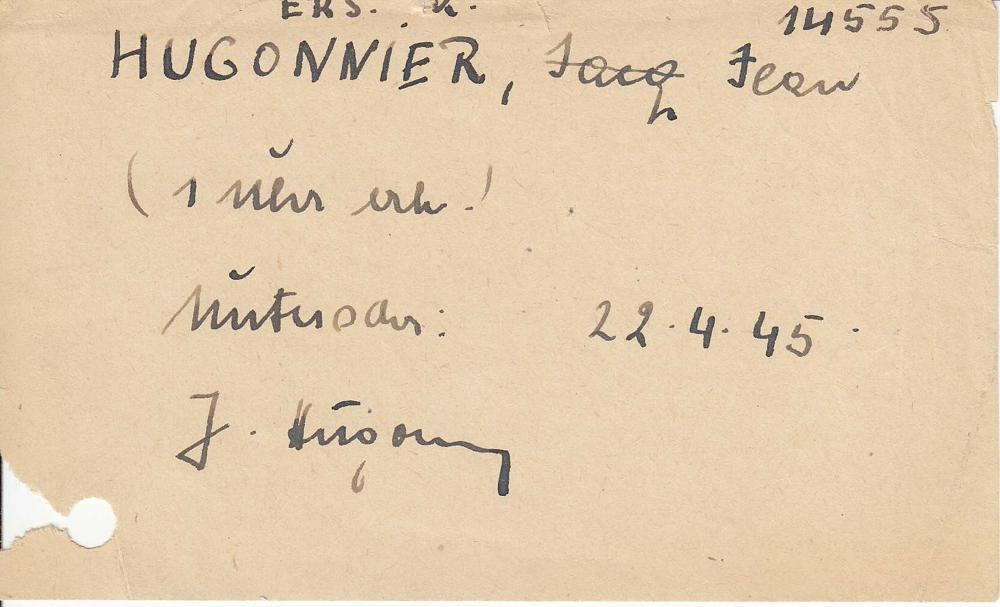 ERS. K. 14555
HUGONNIER, Jacq Jean
( 1 Uhr erh.)
Unterschr: 22.4.45.
J. Hugonn